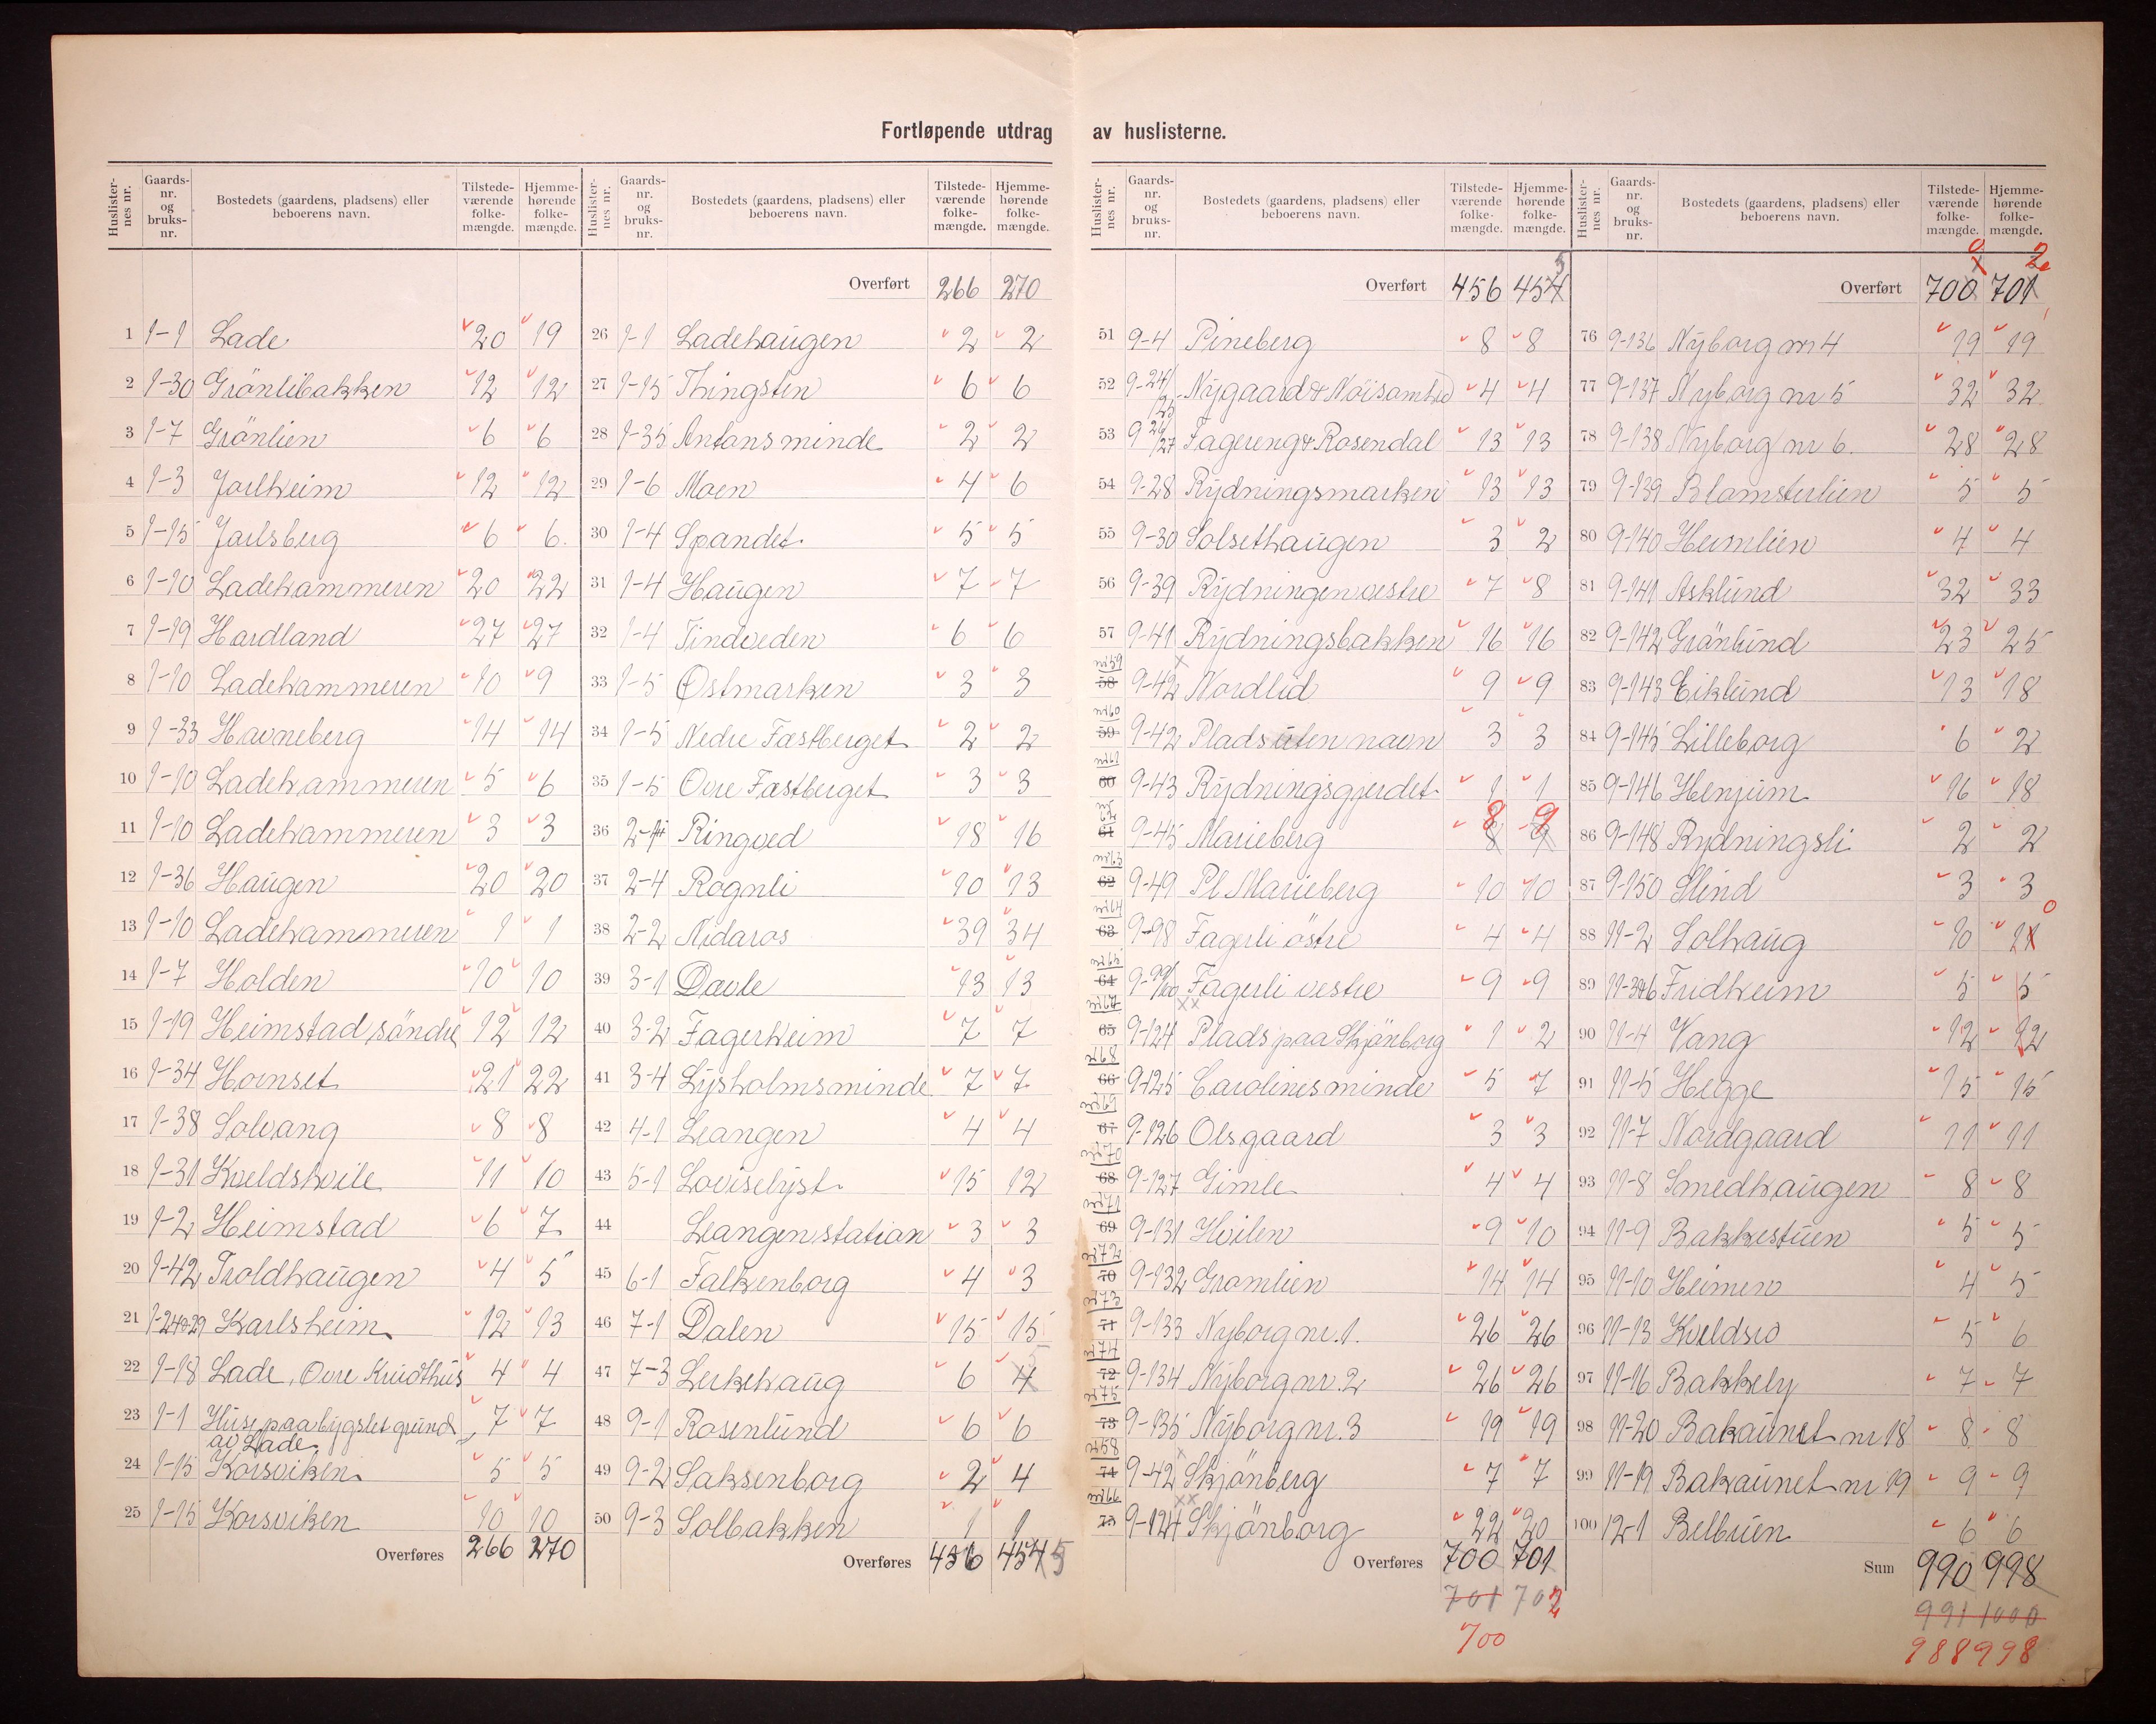 Fortløpende utdrag av huslisterne.
Huslister-nes nr. Gaards-nr. og bruks-nr. Bostedets (gaardens, pladsens) eller beboerens navn. Tilstede-værende folke-mængde. Hjemme-hørende folke-mængde.
1 1-1 Lade 20 19
2 1-30 Grönlibakken 12 12
3 1-7 Grönlien 6 6
4 1-3 Jarlheim 12 12
5 1-15 Jarlsberg 6 6.
6 1-10 Ladehammeren 20 22
7 1-19 Hardland 27 27
8 1-10 Ladehammeren 10 9
9 1-33 Havneberg 14 14
10 1-10 Ladehammeren 5 6
11 1-10 Ladehammeren 3 3
12 1-36 Haugen 20 20
13 1-10 Ladehammeren 1 1
14 1-7 Holden 10 10
15 1-19 Heimstad söndre 12 12
16 1-34 Hornset 21 22
17 1-38 Solvang 8 8
18 1-31 Kveldshvile 11 10
19 1-2 Heimstad 6 7
20 1-42 Troldhaugen 4 5
21 1-24&29 Karlsheim 12 13
22 1-18 Lade, Övre Krudthus 4 4
23 1-1 Huse paa bygslet grund av Lade. 7 7
24 1-15 Korsviken 5 5
25 1-15 Korsviken 10 10
Overføres 266 270
Huslister-nes nr. Gaards-nr. og bruks-nr. Bostedets (gaardens, pladsens) eller beboerens navn. Tilstede-værende folke-mængde. Hjemme-hørende folke-mængde.
Overført 266 270
26 1-1 Ladehaugen 2 2
27 1-15 Thingsten 6 6
28 1-35 Antons minde 2 2
29 1-6 Moen 4 6
30 1-4 Spandet 5 5
31 1-4 Haugen 7 7
32 1-4 Tindveden 6 6
33 1-5 Östmarken 3 3
34 1-5 Nedre Fæstberget 2 2
35 1-5 Övre Fæstberget 3 3
36 Ringved 18 16
37 2-4 Rognli 10 13
38 2-2 Nidaros 39 34
39 3-1 Davle 13 13
40 3-2 Fagerheim 7 7
41 3-4 Lysholmsminde 7 7
42 4-1 Leangen 4 4
43 5-1 Loviselyst 15 12
44 Leangen station 3 3
45 6-1 Falkenborg 4 3
46 7-1 Dalen 15 15
47 7-3 Lerkehaug 6 4 5
48 9-1 Rosenlund 6 6
49 9-2 Saksenborg 2 4
50 9-3 Solbakken 1 1
Overføres 456 454 5
Huslister-nes nr. Gaards-nr. og bruks-nr. Bostedets (gaardens, pladsens) eller beboerens navn. Tilstede-værende folke-mængde. Hjemme-hørende folke-mængde.
Overført 456 454 5
51 9-4 Pineberg 8 8
52 9-24/25 Nygaard & Nöisomhed 4 4
53 9-26/27 Fagereng & Rosendal 13 13
54 9-28 Rydningsmarken 13 13
55 9-30 Solsethaugen 3 2
56 9-39 Rydningen vestre 7 8
57 9-41 Rydningsbakken 16 16
nr 59 58 9-42 x Nordlid 9 9
nr 60 59 9-42 Plads uten navn 3 3
nr 61 60 9-43 Rydningsgjerdet 1 1
nr 62 61 9-45 Marieberg 8 9 8 9
nr 63 62 9-49 Pl Marieberg 10 10
nr 64 63 9-98 Fagerli östre 4 4
nr 65 64 9-99/100 Fagerli vestre 9 9
nr 67 65 9-124 xx Plads paa Skjönborg 1 2
nr 68 66 9-125 Carolinesminde 5 7
nr 69 67 9-126 Olsgaard 3 3
nr 70 68 9-127 Gimle 4 4
nr 71 69 9-131 Hvilen 9 10
nr 72 70 9-132 Gromlien 14 14
nr 73 71 9-133 Nyborg nr. 1. 26 26
nr 74 72 9-134 Nyborg nr. 2 26 26
nr 75 73 9-135 Nyborg nr. 3 19 19
nr 58 74 9-42 x Skjönberg 7 7
nr 66 75 9-124 xx Skjönborg 22 20
Overføres 700 701
701 702
700
Huslister-nes nr. Gaards-nr. og bruks-nr. Bostedets (gaardens, pladsens) eller beboerens navn. Tilstede-værende folke-mængde. Hjemme-hørende folke-mængde.
Overført 700 701 2
76 9-136 Nyborg nr 4 19 19
77 9-137 Nyborg nr 5 32 32
78 9-138 Nyborg nr 6. 28 28
79 9-139 Blomsterlien 5 5
80 9-140 Heimlien 4 4
81 9-141 Asklund 32 33
82 9-142 Grönlund 23 25
83 9-143 Eiklund 13 18
84 9-145 Lilleborg 6 2
85 9-146 Henjum 16 18
86 9-148 Rydningsli 2 2
87 9-150 Slind 3 3
88 11-2 Solhaug 10 11 0
89 11-3&6 Fridheim 5 5
90 11-4 Vang 12 12
91 11-5 Hegge 15 15
92 11-7 Nordgaard 11 11
93 11-8 Smedhaugen 8 8
94 11-9 Bakkestuen 5 5
95 11-10 Heimen 4 5
96 11-13 Kveldsro 5 6
97 11-16 Bakkely 7 7
98 11-20 Bakaunet nr 18 8 8
99 11-19 Bakaunet nr 19 9 9
100 12-1 Belbuen 6 6
Sum 990 998
991 1000
988 998